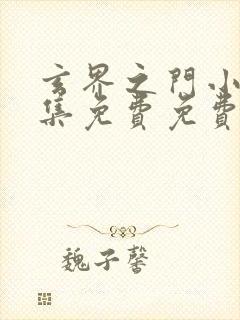 玄界之門小
集免費免費
魏子馨